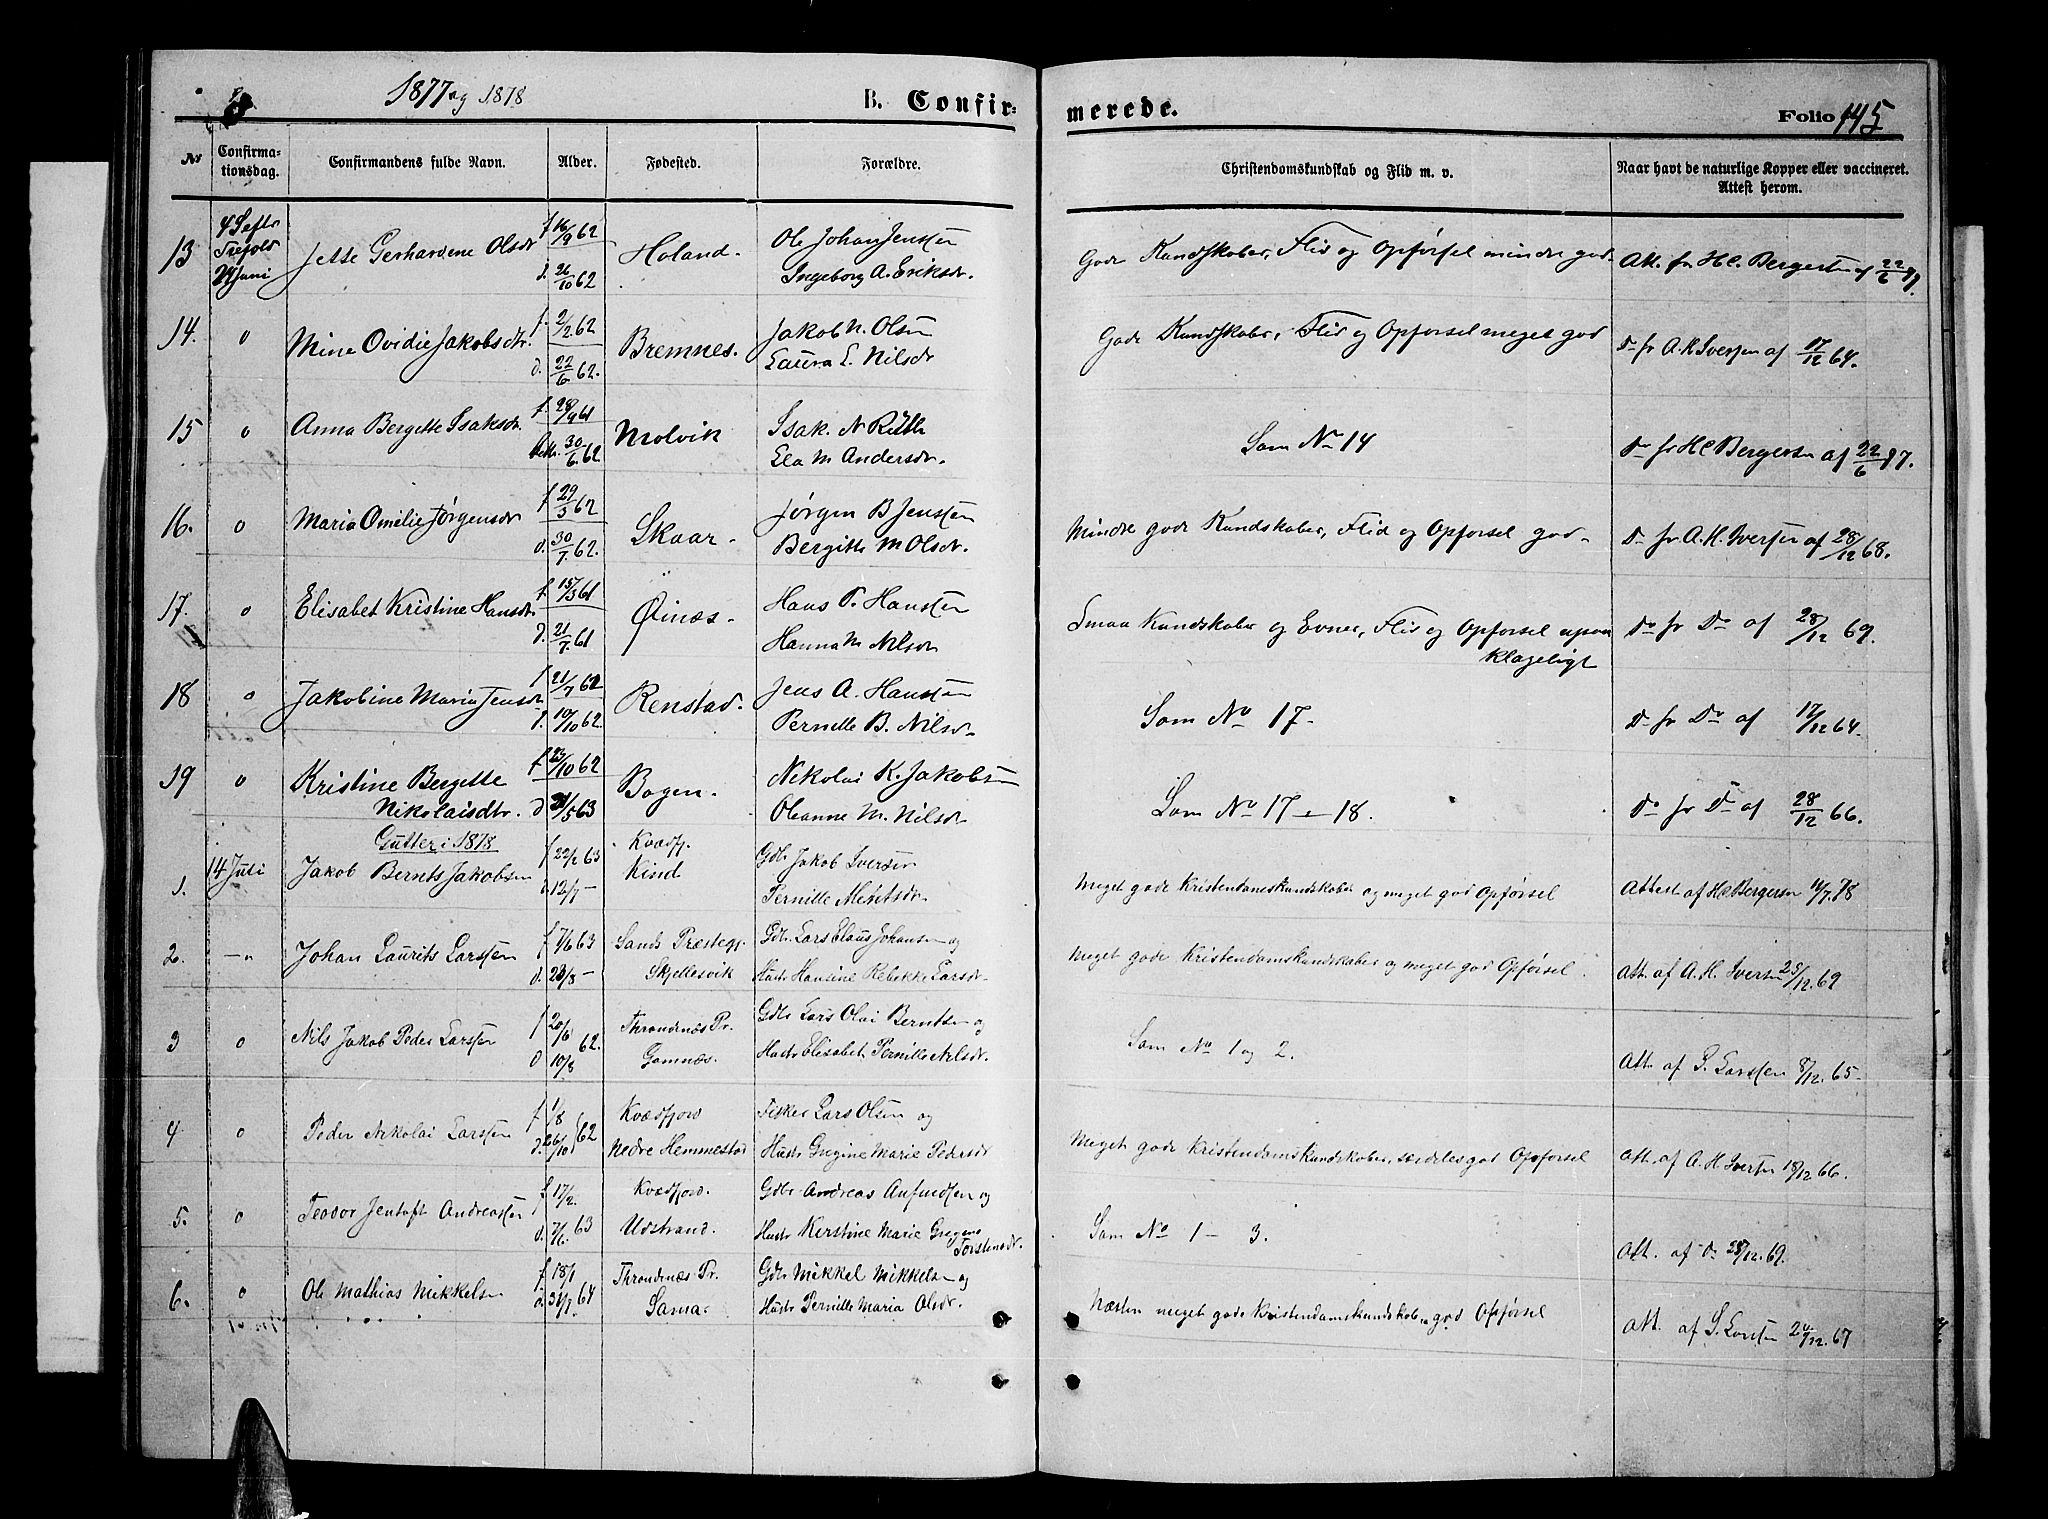 1877 og 1878
B. Confir-
merede.
Folio 145
No
Confirma-
tionsdag.
Confirmandens fulde Navn.
Alder.
Fødested.
Forældre.
Christendomskundskab og Flid m. v.
Naar havt de naturlige Kopper eller vaccineret.
Attest herom.
13 4 Septr Jette Gerhardene Olsdr f 16/9 62 Holand. Ole Johan Jenssen Gode Kundskaber, Flid og Opførsel mindre god. Att. fr H C. Bergersen af 22/6 77.
d. 26/10 62 Ingeborg A. Eriksdr.
14. o Mine Ovidie Jakobsdtr. f. 2/2 62 Bremnes. Jakob N. Olsen Gode Kundskaber, Flid og Opførsel meget god Do fr A. H Iversen af 17/12 64.
d. 22/6 62. Laura E. Nilsdr
15 o Anna Bergette Isaksdr. f. 28/9 61 Molvik Isak. N Som No 14 Do fr H C Bergersen af 22/6 77.
30/6 62 Ela M Andersdr.
16. o Maria Omelie Jørgensdr f 29/3 62 Skaar. Jørgen B Jenssen Mindre gode Kundskaber, Flid og Opførsel god. Do fr A. H. Iversen af 28/12 68.
d. 30/7 62. Bergitte M Olsdr.
17. o Elisabet Kristine Hansdr f. 15/3 61 Øinæs. Hans P. Hanssen Smaa Kundskaber og Evner, Flid og Opførsel upaa Do fr Do af 28/12 69.
d. 21/7 61 Hanna M Nilsdr klageligt
18 o Jakobine Maria Jensdr f 21/7 62 Renstad. Jens A. Hanssen Som No 17. Do fr Do af 17/12 64.
d. 10/10 62. Pernille B. Nilsdr.
19 o Kristine Bergette f 23/10 62 Bogen. Nikolai K. Jakobsen Som No 17 - 18. Do fr Do af 28/12 66.
Nikolaisdtr. d 31/5 63 Oleanne M. Nilsdr
Gutter i 1878
1. 14 Juli Jakob Bernts Jakobsen f 22/2 63 Kvædfj. Gdb Jakob Iversen Meget gode Kristendomskundskaber og meget god Opførsel Attest af H C Bergersen 11/7. 78
d. 12/7 - Kind Pernille
2. -"- Johan Laurits Larssen f 7/6 63 Sands Præstegj. Gdb Lars Claus Johansen og Meget gode Kristendomskundskaber og meget god Opførsel. Att. af A. H. Iversen 28/12. 69
d. 23/8 - Skjellesvik Hustr Hansine Rebekke Larsdr.
3 o Nils Jakob Peder Larssen f 20/6 62. Throndenæs Pr. Gdb Lars Olai Berntsen og Som No 1 og 2. Att. af S. Larssen 8/12. 65.
d 10/8 Gamnæs. Hustr Elisabet Pernille Nilsdr.
4 o Peder Nikolai Larssen f. 1/8 62 Kvædfjord Fisker Lars Olsen og Meget gode Kristendomskundskaber, særdeles god Opførsel Att. af A. H Iversen 18/12 66.
d. 26/10 Nedre Hemmestad Hustr Gregine Marie Pedersdr
5. o Teodor Jentoft Andreassen f. 17/2. Kvædfjord. Gdbr Andreas Anfindsen og Som No 1 - 3. Att. af Do 28/12. 69.
d. 7/6. 63 Udstrand. Hustr Kerstine Marie Gregine
Torstensdr.
6. o Ole Mathias Mikkelsen f. 18/1 64 Throndenæs Pr. Gdb Mikkel Mikkelsen og Næsten meget gode Kristendomskundskaber, god Opførsel Att. af S. Larssen 20/12. 67
Sama. Hustr Pernille Maria Olsdr.